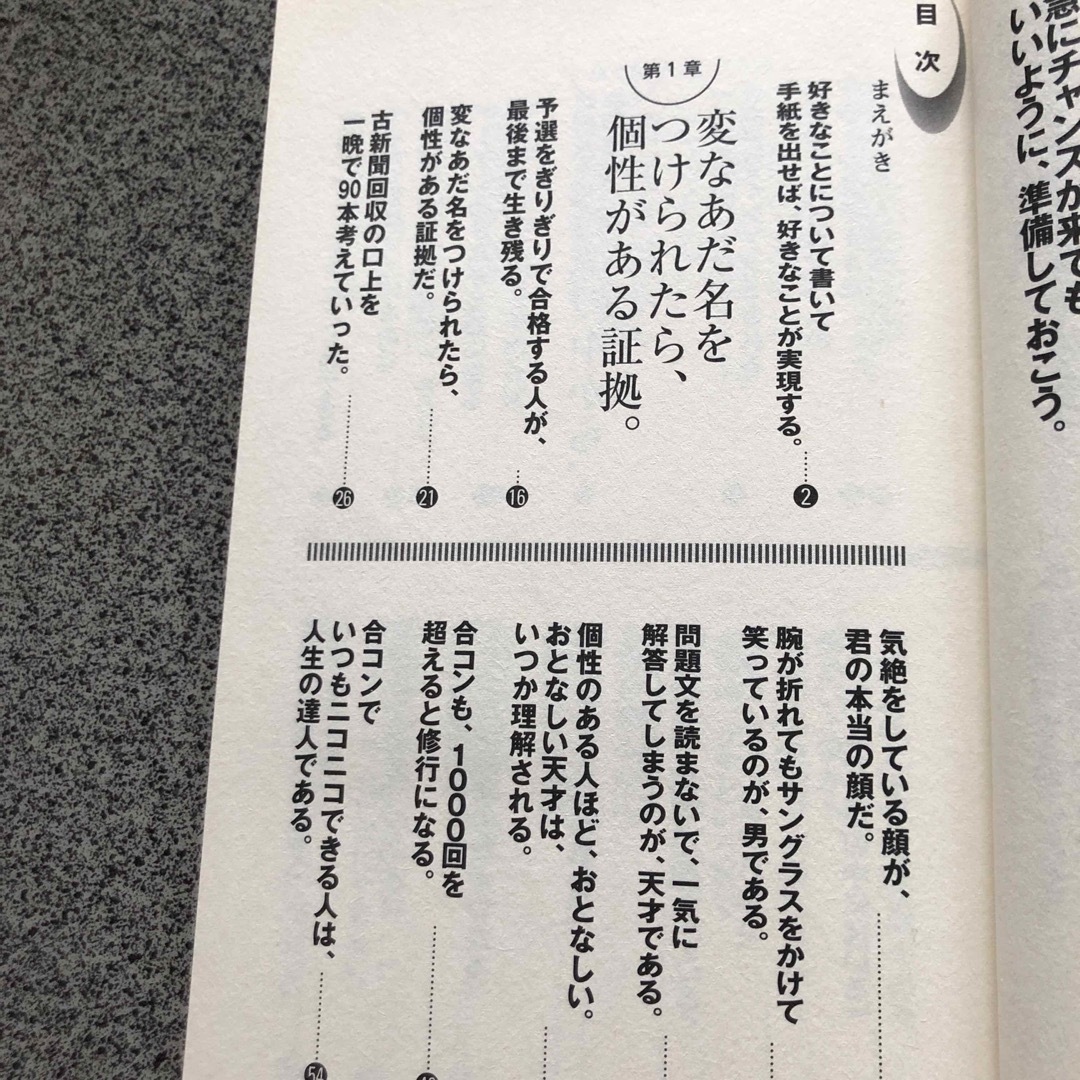 急にチャンスが来ても
いいように、準備しておこう。
目次
まえがき
好きなことについて書いて
手紙を出せば、好きなことが実現する。……2
第1章
変なあだ名を
つけられたら、
個性がある証拠。
予選をぎりぎりで合格する人が、
最後まで生き残る。…16
変なあだ名をつけられたら、
個性がある証拠だ。……21
古新聞回収の口上を
一晩で90本考えていった。……26
気絶をしている顔が、
君の本当の顔だ。
腕が折れてもサングラスをかけて
笑っているのが、男である。
問題文を読まないで、一気に
解答してしまうのが、天才である。
個性のある人ほど、おとなしい。
おとなしい天才は、
いつか理解される。
合コンも、1000回を
超えると修行になる。
合コンで
いつもニコニコできる人は、
人生の達人である。……54